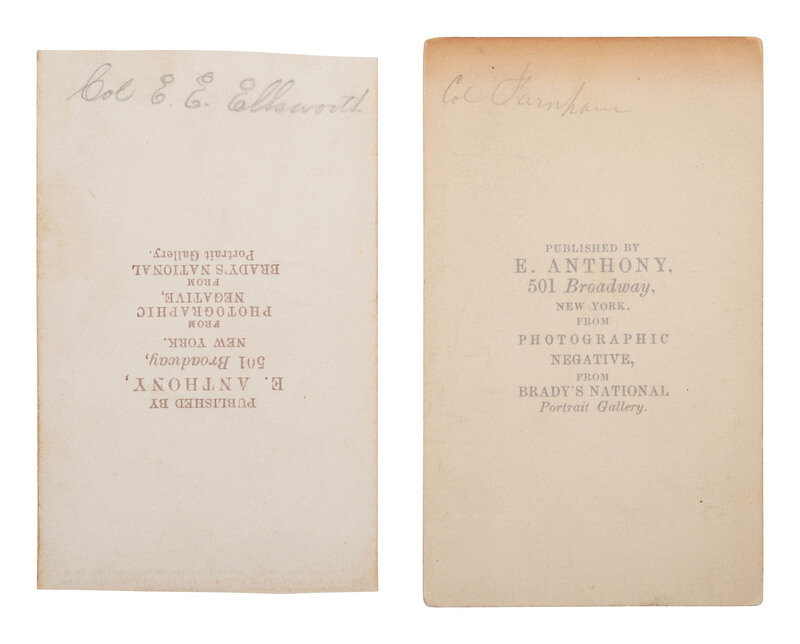 Col E. E. Ellsworth
PUBLISHED BY
E. ANTHONY,
501 Broadway,
NEW YORK.
FROM
PHOTOGRAPHIC
NEGATIVE,
FROM
BRADY'S NATIONAL
Portrait Gallery.
Col Farnham
PUBLISHED BY
E. ANTHONY,
501 Broadway,
NEW YORK.
FROM
PHOTOGRAPHIC
NEGATIVE,
FROM
BRADY'S NATIONAL
Portrait Gallery.